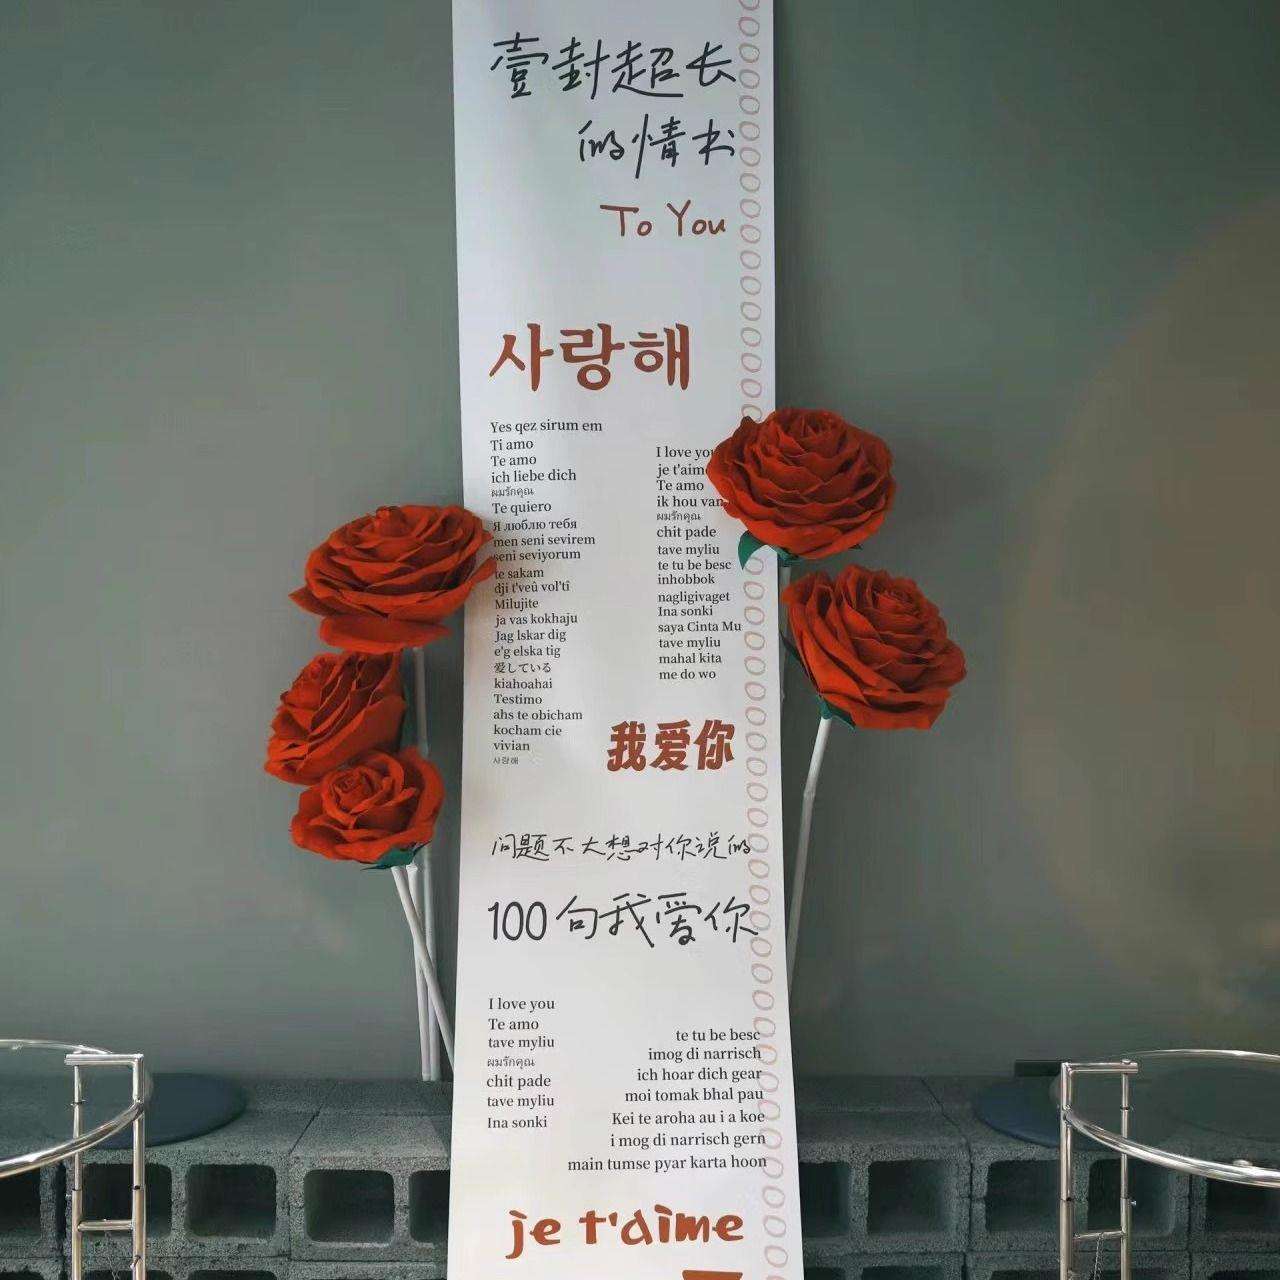 壹封超长
的情书
To You
사랑해
Yes qez sirum em
Ti amo
Te amo
ich liebe dich
ผมรักคุณ
Te quiero
Я люблю тебя
men seni sevirem
seni seviyorum
te sakam
dji t'veû vol'tî
Milujite
ja vas kokhaju
Jag lskar dig
e'g elska tig
愛している
kiahoahai
Testimo
ahs te obicham
kocham cie
vivian
사랑해
I love you
je t'aime
Te amo
ik hou van
ผมรักคุณ
chit pade
tave myliu
te tu be besc
inhobbok
nagligivaget
Ina sonki
saya Cinta Mu
tave myliu
mahal kita
me do wo
我爱你
问题不大想对你说的
100句我爱你
I love you
Te amo
tave myliu
ผมรักคุณ
chit pade
tave myliu
Ina sonki
te tu be besc
imog di narrisch
ich hoar dich gear
moi tomak bhal pau
Kei te aroha au i a koe
i mog di narrisch gern
main tumse pyar karta hoon
je t'aime